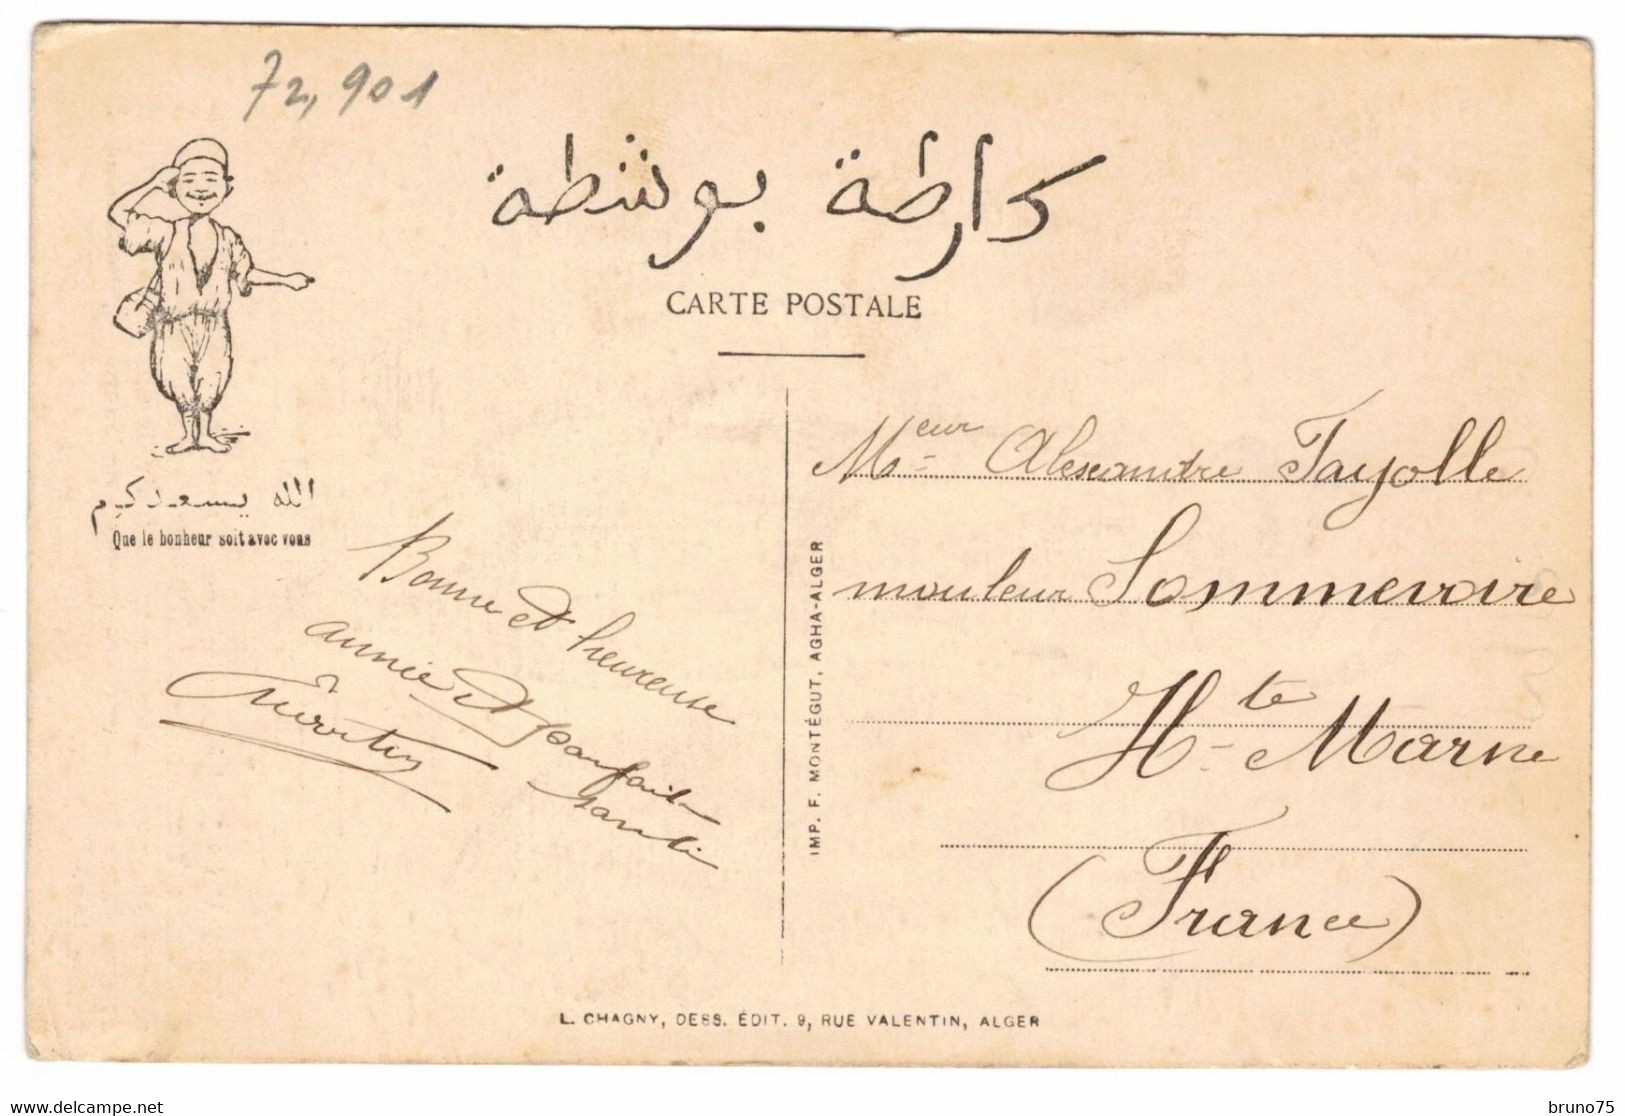 72,901
كارطة بوشطة
CARTE POSTALE
الله يسعدكم
Que le bonheur soit avec vous
Bonne et heureuse
année et parfaite
santé
Meur Alexandre Fayolle
mouleur Sommevoire
Hte Marne
(France)
IMP. F. MONTÉGUT, AGHA-ALGER
L. CHAGNY, DESS. ÉDIT. 9, RUE VALENTIN, ALGER
bruno75